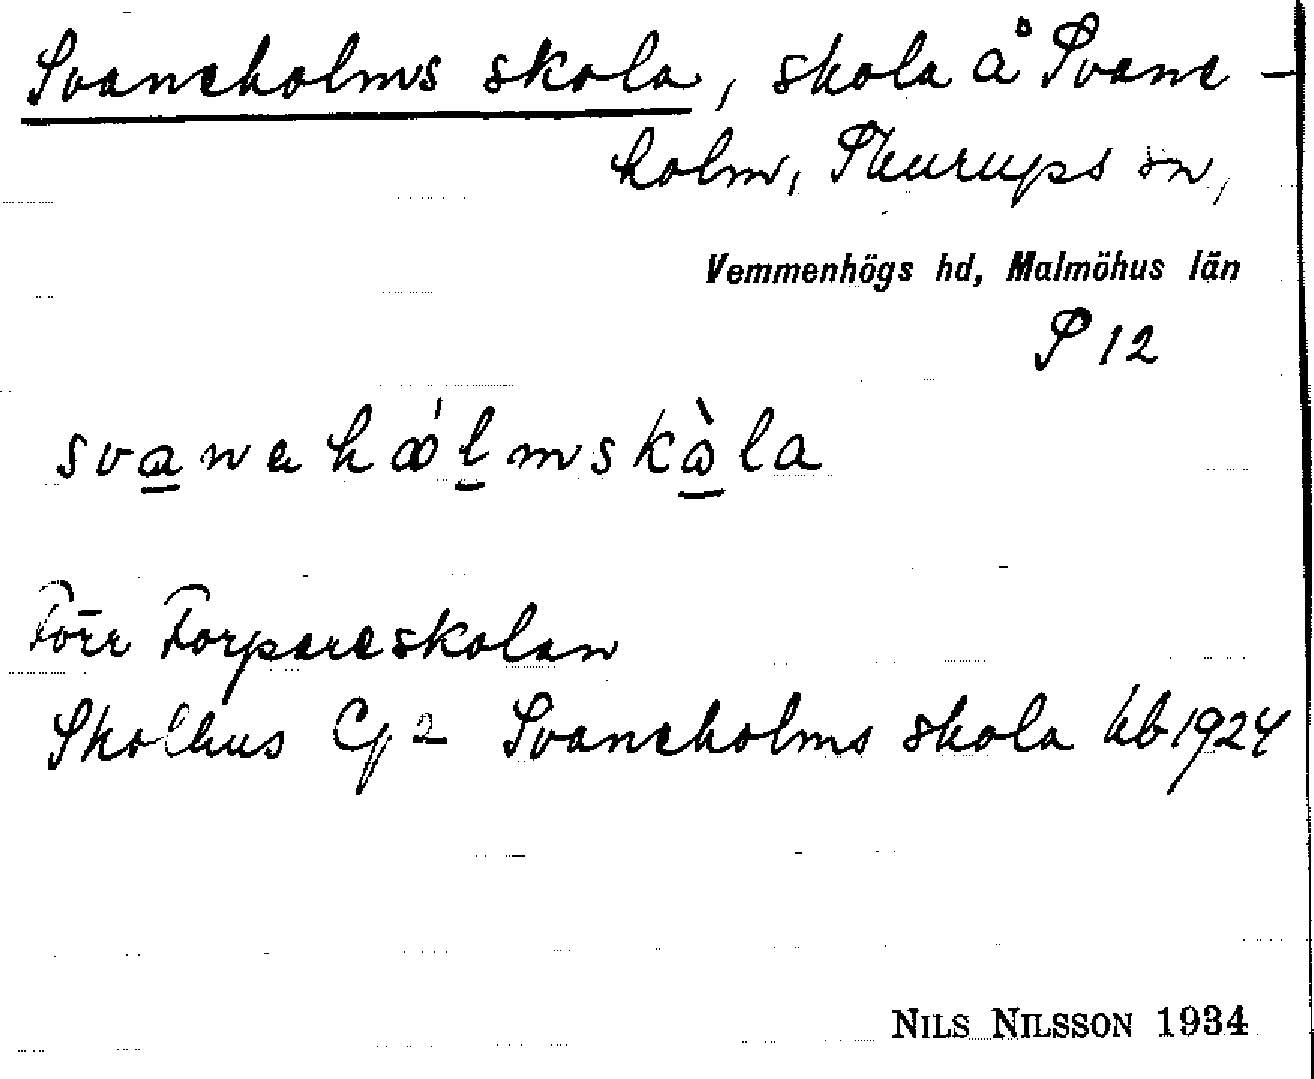 Svaneholms skola, skola å Svane-
holm, Skurups sn,
Vemmenhögs hd, Malmöhus län
S 12
svanahålmskòla
Förr Torpareskolan
Skolhus Cg 2 Svaneholms skola kb 1924
NILS NILSSON 1934